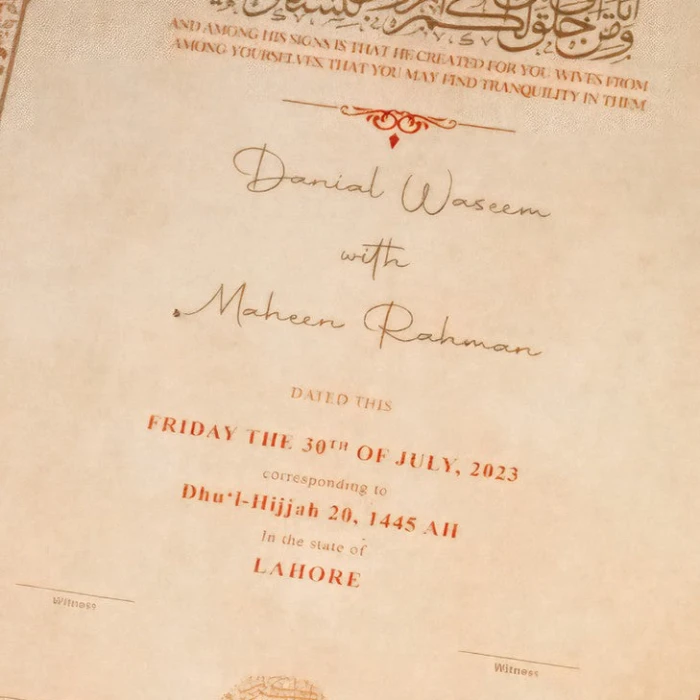 AND AMONG HIS SIGNS IS THAT HE CREATED FOR YOU WIVES FROM
AMONG YOURSELVES, THAT YOU MAY FIND TRANQUILITY IN THEM
Danial Waseem
with
Maheen Rahman
DATED THIS
FRIDAY THE 30TH OF JULY, 2023
corresponding to
Dhu‘l-Hijjah 20, 1445 AH
In the state of
LAHORE
Witness
Witness